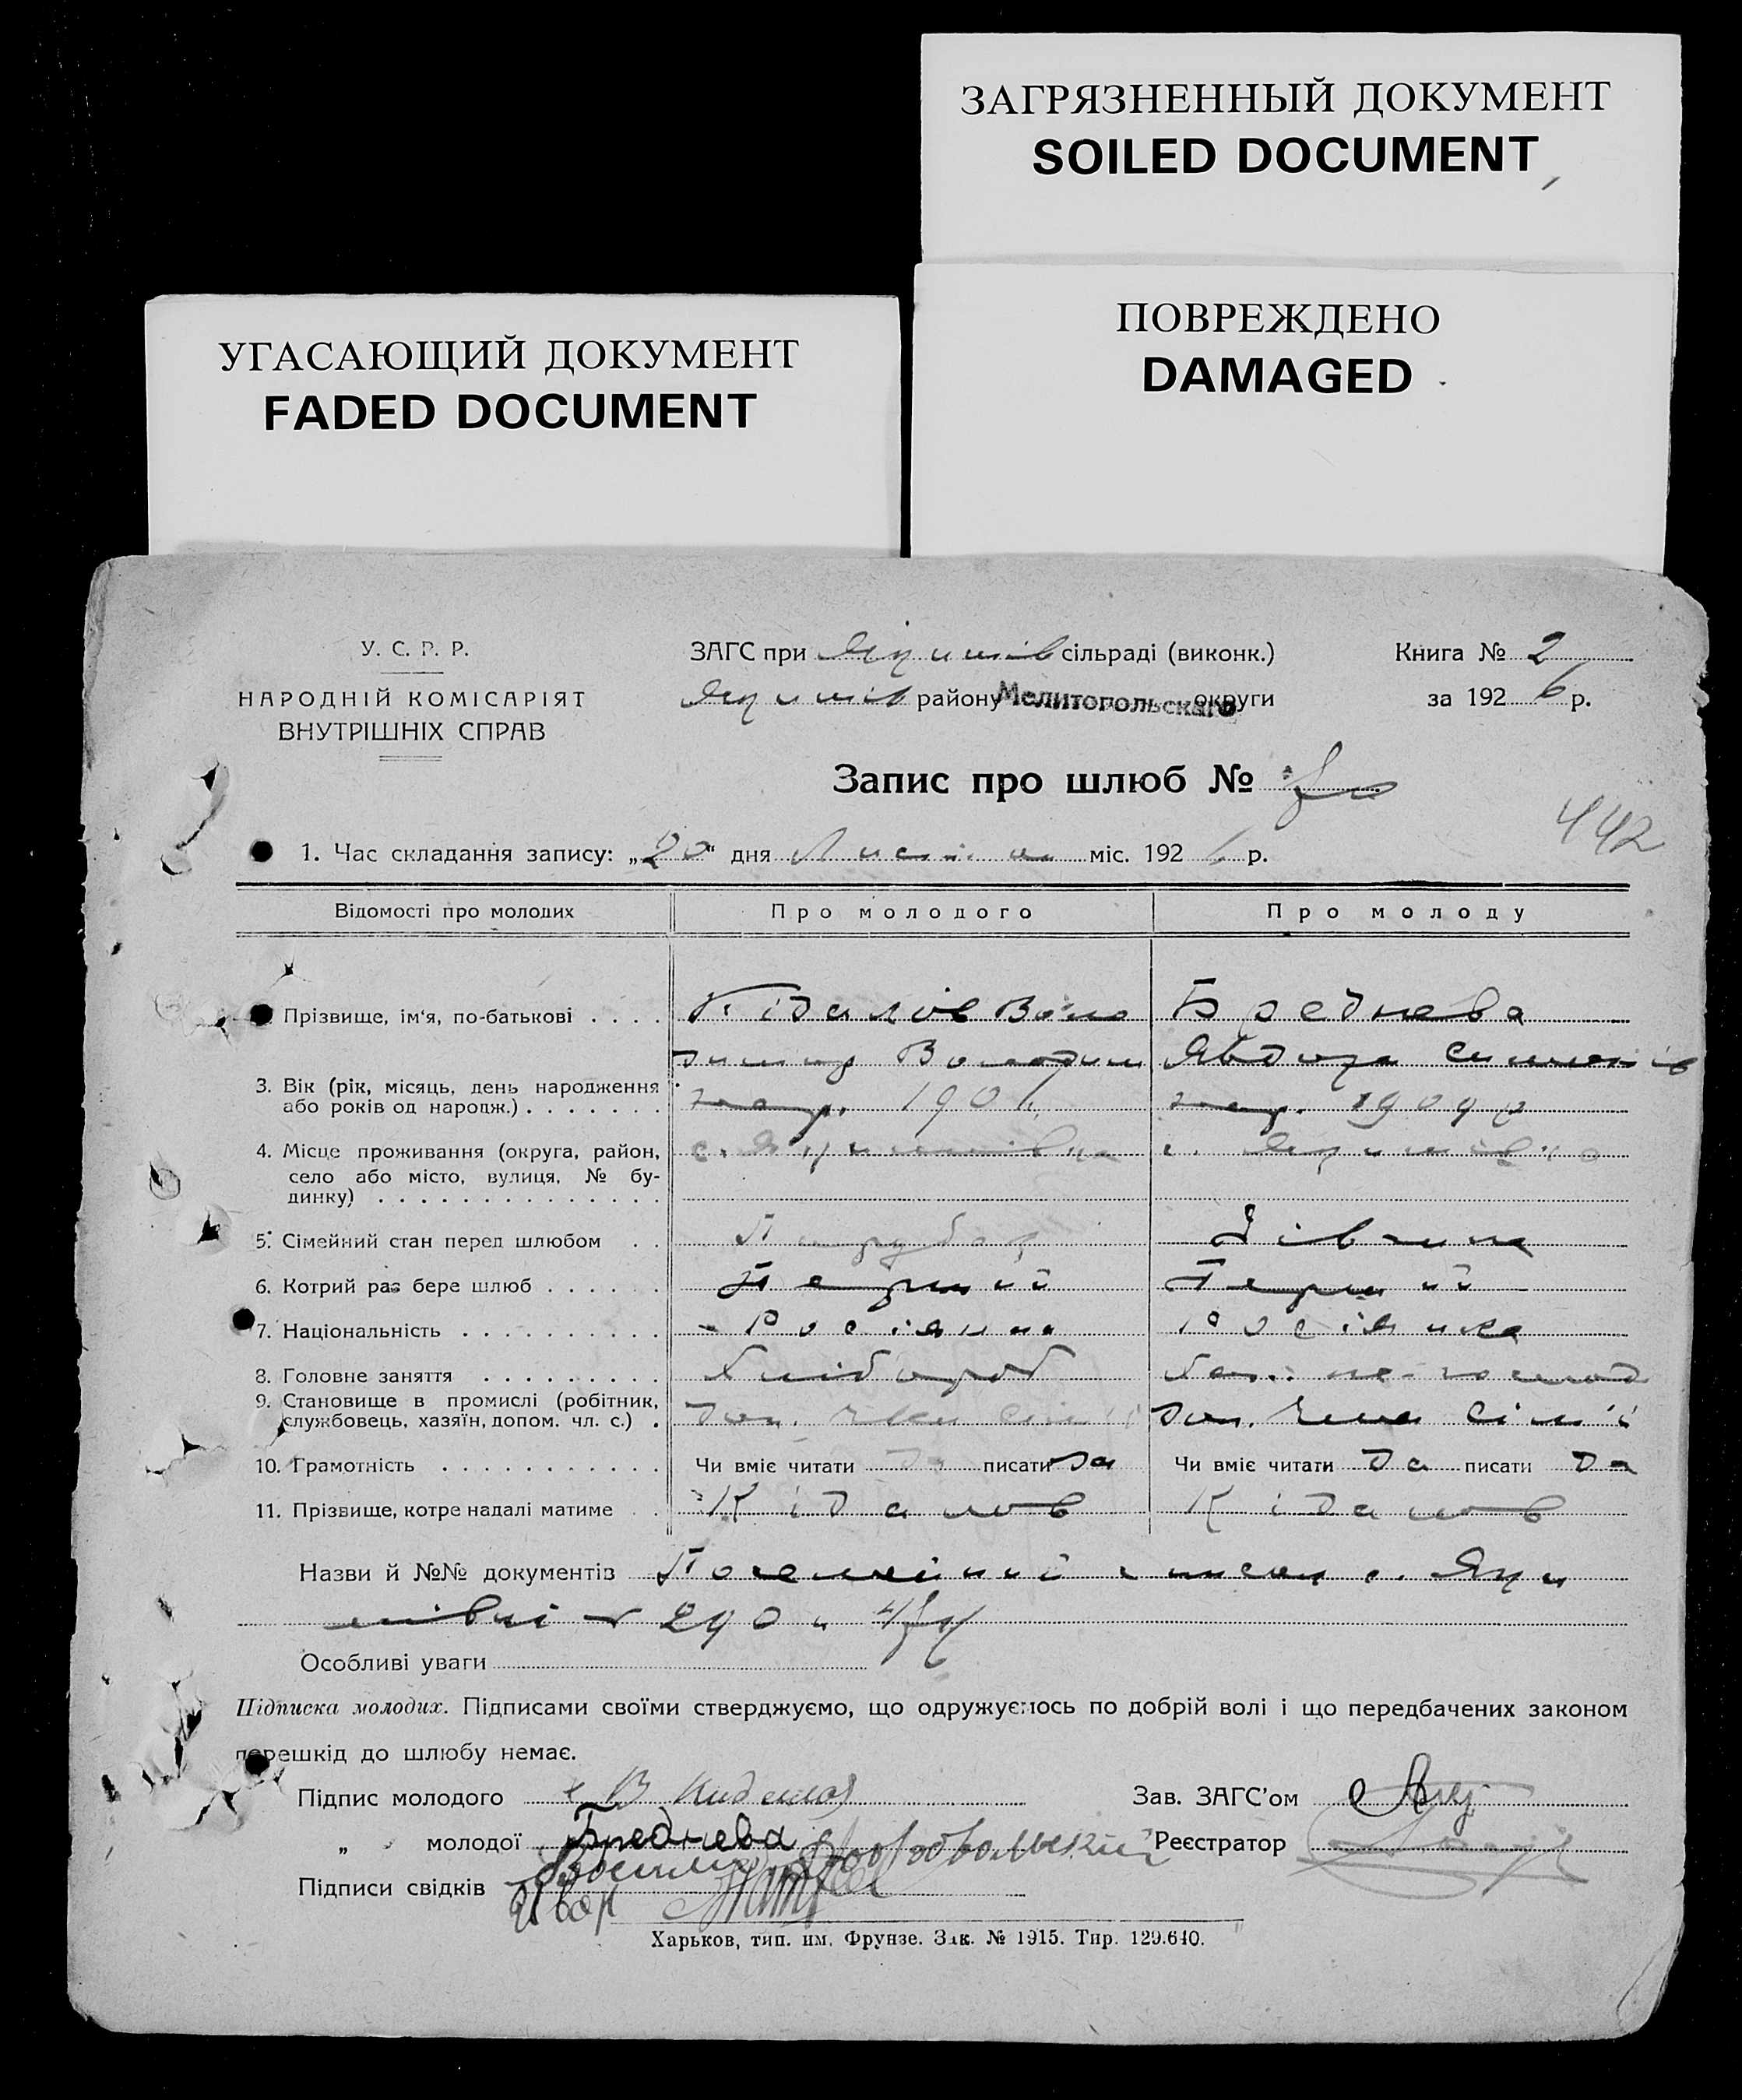 ЗАГРЯЗНЕННЫЙ ДОКУМЕНТ
SOILED DOCUMENT
ПОВРЕЖДЕНО
DAMAGED
УГАСАЮЩИЙ ДОКУМЕНТ
FADED DOCUMENT
У. С. Р. Р.
НАРОДНІЙ КОМІСАРІЯТ
ВНУТРІШНІХ СПРАВ
ЗАГС при Якимів сільраді (виконк.)
Якимів району Мелитопольскаго округи
Книга № 2
за 1926 р.
Запис про шлюб №
442
1. Час складання запису: „20" дня міс. 192 р.
Відомості про молодих Про молодого Про молоду
Прізвище, ім'я, по-батькові Кідалов Воло Бреднева
димир Володим Явдоха
3. Вік (рік, місяць, день народження або років од народж.) 190 1909 р
4. Місце проживання (округа, район, село або місто, вулиця, № будинку) с. Якимівка с. Якимівка
5. Сімейний стан перед шлюбом Парубок Дівчина
6. Котрий раз бере шлюб Перший Перший
7. Національність Росіянин Росіянка
8. Головне заняття Хлібороб
9. Становище в промислі (робітник, службовець, хазяїн, допом. чл. с.) доп. член сім'ї доп. член сім'ї
10. Грамотність Чи вміє читати да писати да Чи вміє читати да писати да
11. Прізвище, котре надалі матиме Кідалов Кідалов
Назви й №№ документів Посемейний список с. Яки
мівкі № 290 и
Особливі уваги
Підписка молодих. Підписами своїми стверджуємо, що одружуємось по добрій волі і що передбачених законом
перешкід до шлюбу немає.
Підпис молодого В Кидалов Зав. ЗАГС'ом
„ молодої Бреднева Реєстратор
Підписи свідків
Харьков, тип. им. Фрунзе. Зак. № 1915. Тир. 129.640.